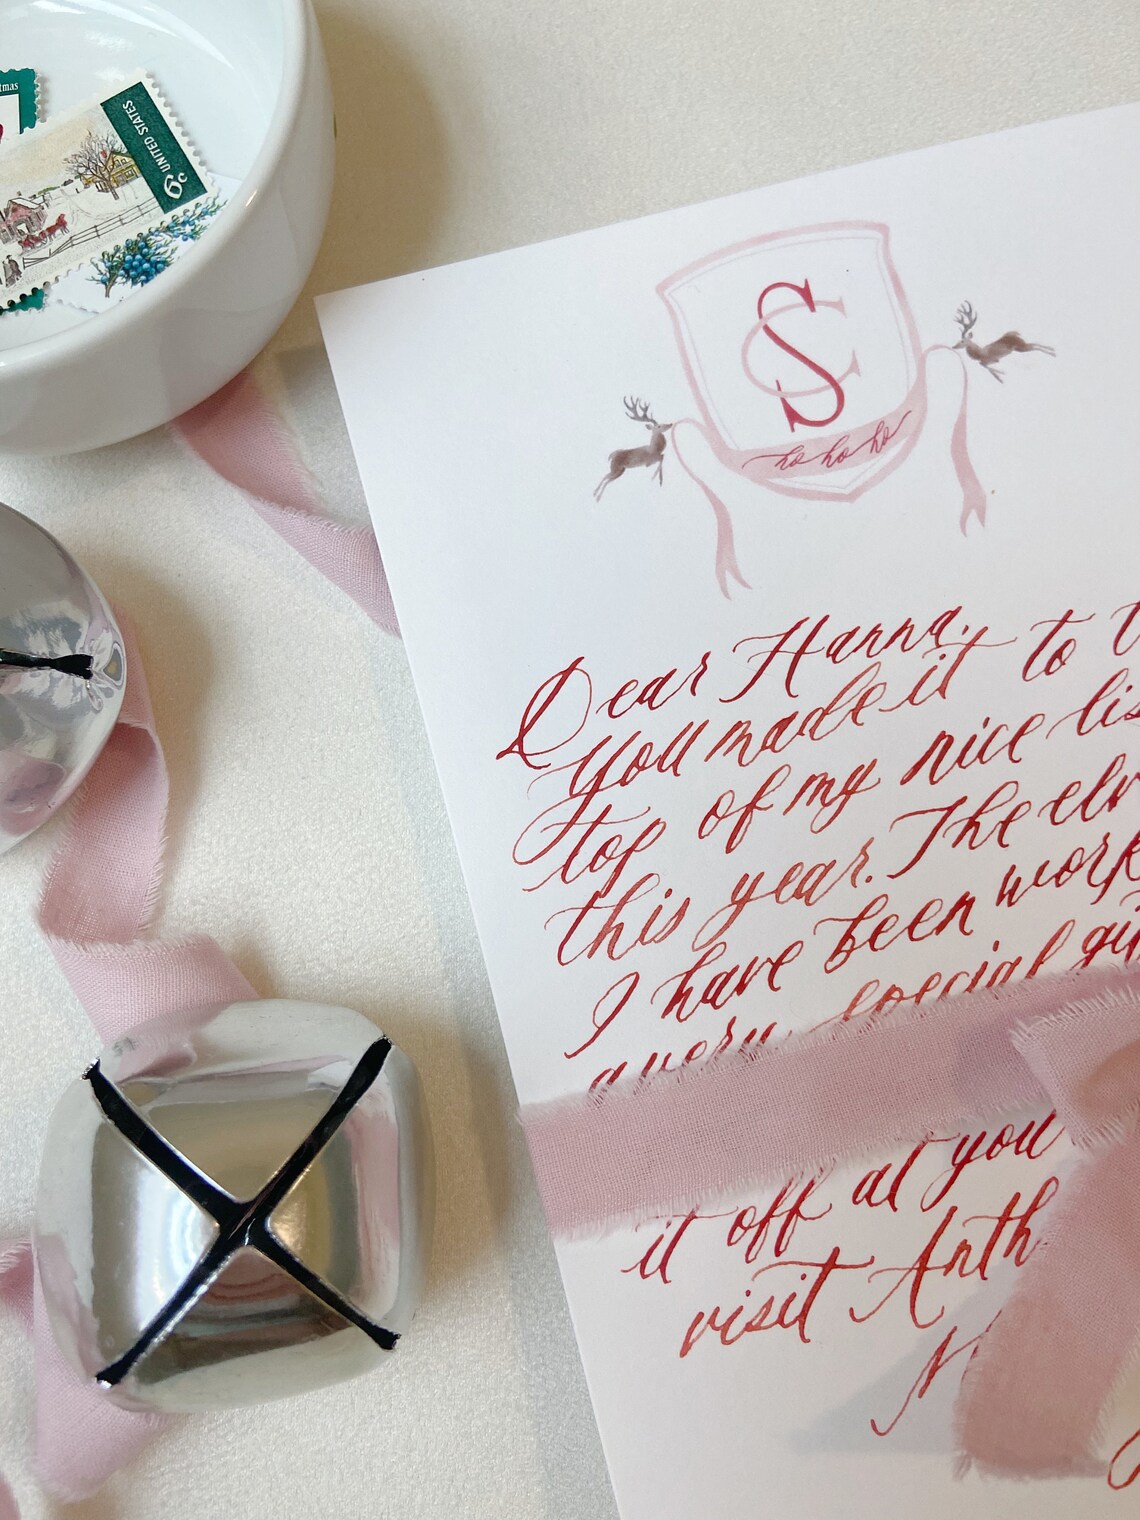 tmas
UNITED STATES
6c
SC
ho ho ho
Dear Hanna,
You made it to t
top of my nice lis
this year. The elv
I have been work
a very special gi
it off at you
visit Anth